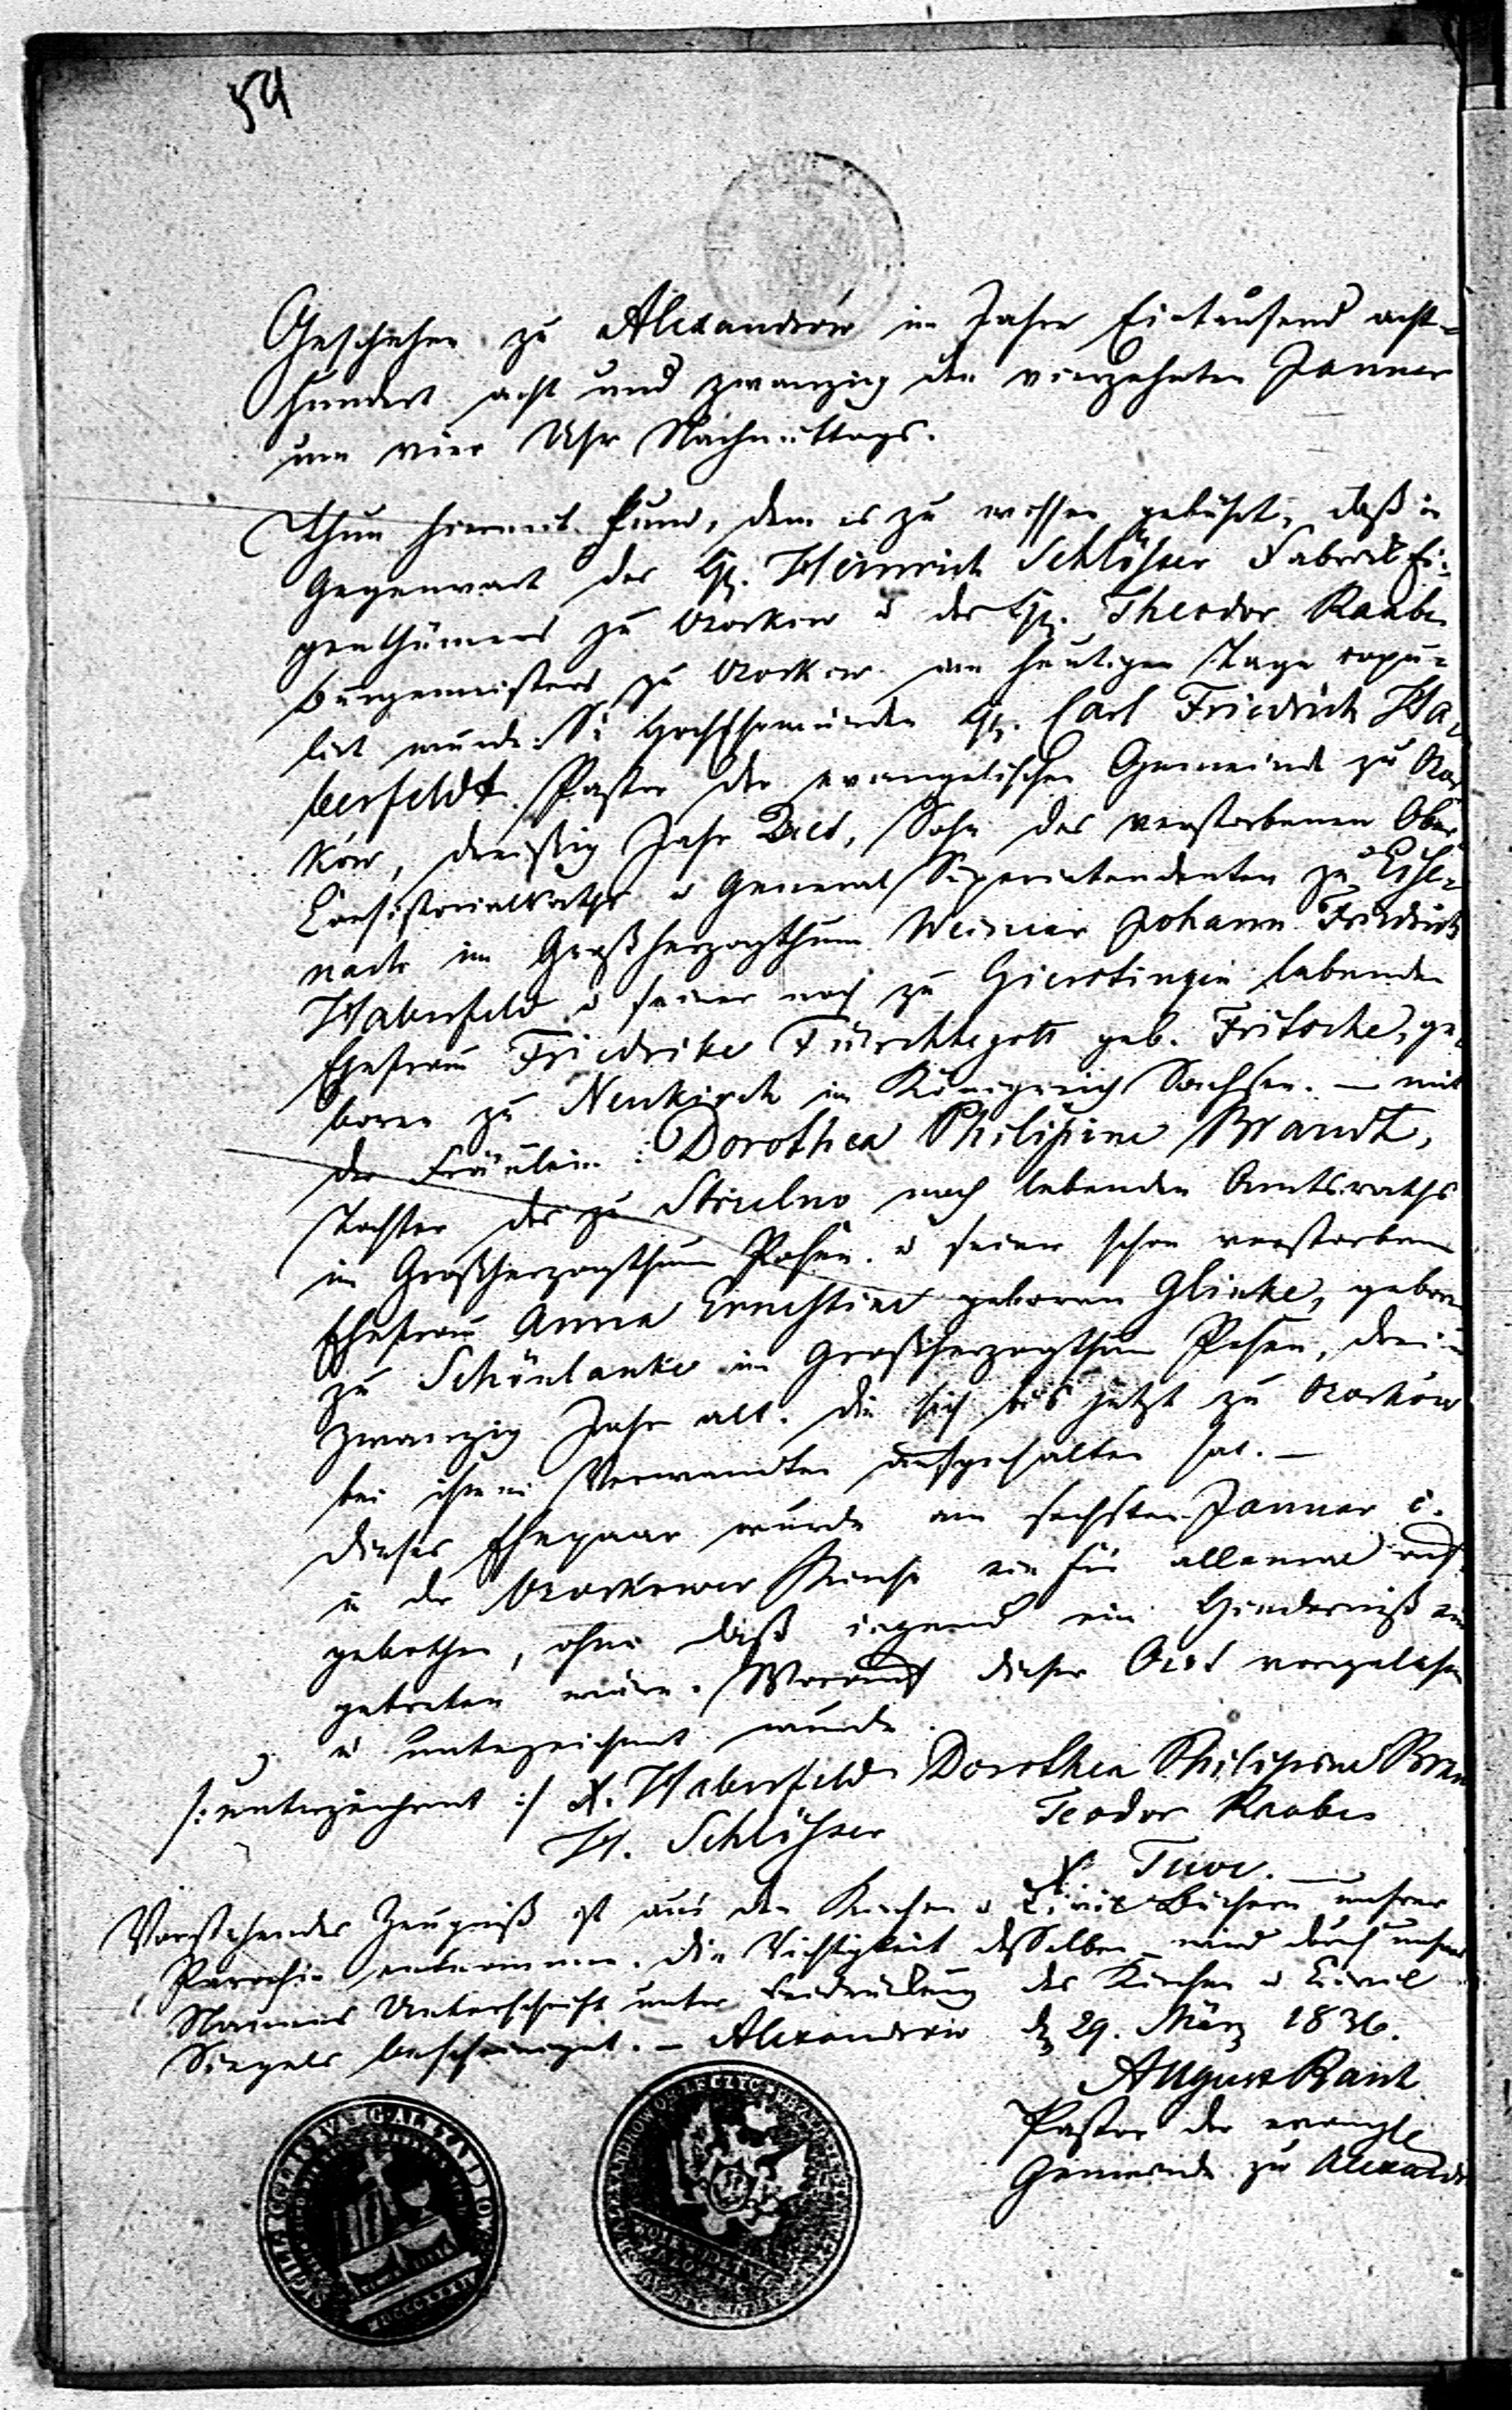 54
Geschehen zu Alexandrow im Jahre Eintausend acht-
hundert acht und zwanzig den vierzehnten Januar
um vier Uhr Nachmittags.
Thun hiermit kund, dem es zu wissen gebührt, daß in
Gegenwart des H. Heinrich Schlösser Fabrik Ei-
genthümers zu Ozorkow u des H. Theodor Raabe
Bürgermeisters zu Ozorkow am heutigen Tage copu-
lirt wurde: Sr Hochehrwürden H. Carl Friedrich Ha-
berfeldt Pastor der evangelischen Gemeinde zu Ozor
kow, dreißig Jahr alt, Sohn des verstorbenen Ober
Consistorialraths u General Superintendenten zu Eise-
nach im Großherzogthum Weimar Johann Friedrich
Haberfeld u seiner noch zu lebenden
Ehefrau Friedrike Fürchtegott geb. Fritsche, ge-
boren zu Neukirch im Königreich Sachsen. — mit
der Fräulein: Dorothea Philipine Brandt,
Tochter des zu Strzelno noch lebenden Amtsraths
im Großherzogthum Posen u seiner schon verstorbenen
Ehefrau Anna Ernestine geboren Glinke, geboren
zu Schönlanke im Großherzogthum Posen, drei u
zwanzig Jahr alt. die sich bis jetzt zu Ozorkow
bei ihren Verwandten aufgehalten hat. —
Dieses Ehepaar wurde am sechsten Januar c.
in der Ozorkower Kirche ein für allemal auf
gebothen, ohne daß irgend ein Hinderniß ein
getreten wäre. Worauf dieser Act vorgelesen
u unterzeichnet wurde.
/: unterzeichnet :/ F. Haberfeld Dorothea Philipine Bran
H. Schlösser Teodor Raabe
Tuve. —
Vorstehendes Zeugniß ist aus den Kirchen u Civil Büchern unsrer
Parochie entnommen. Die Richtigkeit desselben wird durch unsre
Namens Unterschrift unter Beidrückung des Kirchen u Civil
Siegels bescheiniget. — Alexandrow d 29. März 1836.
August Banch
Pastor der evangle
Gemeinde zu Alexandr